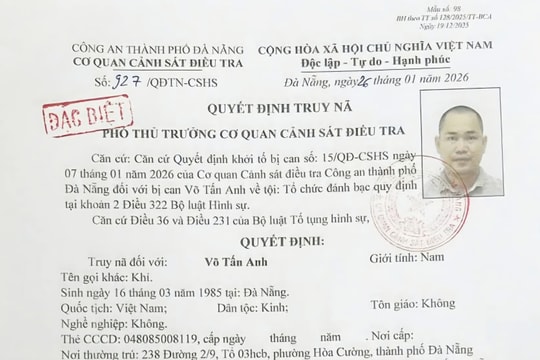 Mẫu số: 98
BH theo TT số 128/2025/TT-BCA
Ngày 19/12/2025
CÔNG AN THÀNH PHỐ ĐÀ NẴNG
CƠ QUAN CẢNH SÁT ĐIỀU TRA
Số: 927 /QĐTN-CSHS
CỘNG HÒA XÃ HỘI CHỦ NGHĨA VIỆT NAM
Độc lập - Tự do - Hạnh phúc
Đà Nẵng, ngày 26 tháng 01 năm 2026
ĐẶC BIỆT
QUYẾT ĐỊNH TRUY NÃ
PHÓ THỦ TRƯỞNG CƠ QUAN CẢNH SÁT ĐIỀU TRA
Căn cứ: Căn cứ Quyết định khởi tố bị can số: 15/QĐ-CSHS ngày
07 tháng 01 năm 2026 của Cơ quan Cảnh sát điều tra Công an thành phố
Đà Nẵng đối với bị can Võ Tấn Anh về tội: Tổ chức đánh bạc quy định
tại khoản 2 Điều 322 Bộ luật Hình sự.
Căn cứ Điều 36 và Điều 231 của Bộ luật Tố tụng hình sự,
QUYẾT ĐỊNH:
Truy nã đối với: Võ Tấn Anh Giới tính: Nam
Tên gọi khác: Khỉ.
Sinh ngày 16 tháng 03 năm 1985 tại: Đà Nẵng.
Quốc tịch: Việt Nam; Dân tộc: Kinh; Tôn giáo: Không
Nghề nghiệp: Không.
Thẻ CCCD: 048085008119, cấp ngày tháng năm . Nơi cấp:
Nơi thường trú: 238 Đường 2/9, Tổ 03hcb, phường Hòa Cường, thành phố Đà Nẵng